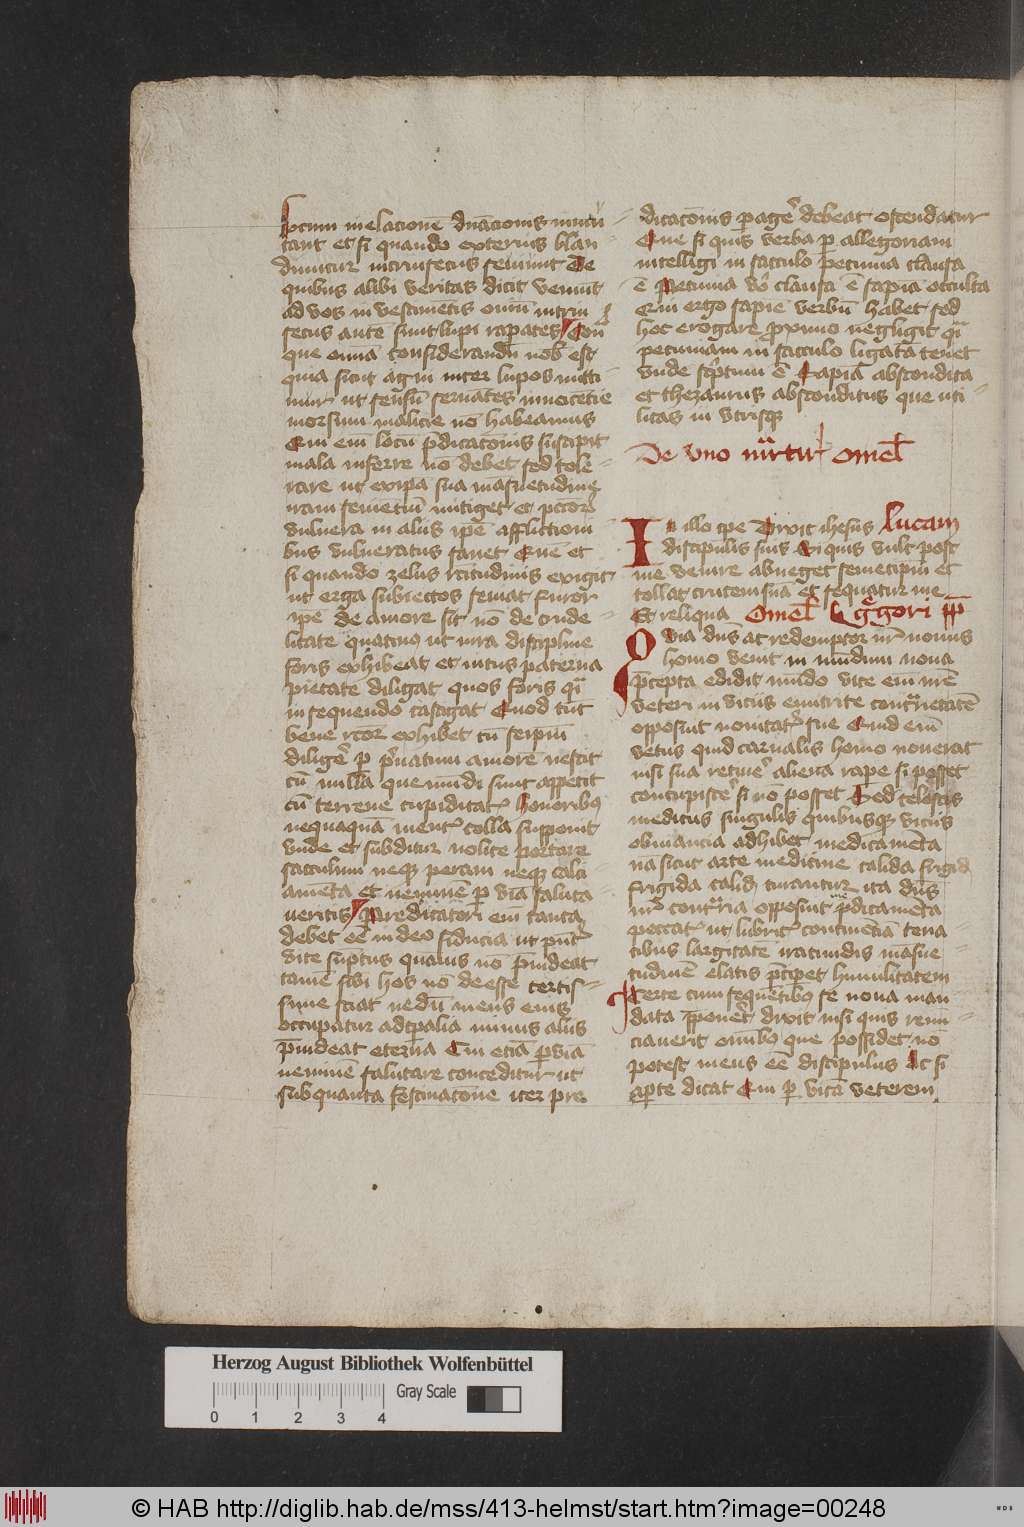 tant et si quando exterius blan
diuntur intrinsecus seuiunt De
quibus alibi veritas dicit veniunt
ad vos in vestimētis ouiū intrin
secus autē sunt lupi rapaces Con
que omnia considerandū nob̄ est
quia sicut agni inter lupos mitti
mur ut sensū seruātes innocētie
morsum malicie nō habeamus
Qui em̄ locū p̄dicatōnis suscipit
mala inferre nō debet sed tole
rare ut ex ip̄a sua māsuetudine
iram seuiētiū mitiget et pctor̄
vulnera in aliis ip̄e afflictioni
bus vulneratus sanet Quē et
si quando zelus rc̄titudinis exigit
ut erga subiectos seuiat furor
ip̄e de amore sit nō de crude
litate quatinꝰ ut iura discipline
foris exhibeat et intus paterna
pietate diligat quos foris q̄i
insequendo castigat Quod tūc
bene rctor exhibet cū seip̄m
diligē p p̄uatum amorē nescit
cū nulla que mūdi sunt appetit
cū terrene cupiditatꝭ honoribꝰ
nequaquā mentꝭ colla supponit
vnde et subditur nolite portare
sacculum neqꝫ peram neqꝫ calci
amēta et neminē p viā saluta
ueritis Predicatori em̄ tanta
debet eē in deo fiducia ut pn̄tꝭ
vite sūptus quāuis nō p̄uideat
tamē sibi hos nō deesse certis
sime sciat ne dū mens eius
occupatur ad tp̄alia minus aliis
p̄uideat eterna Cui etiā p viā
neminē salutare conceditur ut
sub quanta festinatōne iter pre
dicatōnis pagē debeat ostendatur
Que si quis verba p allegoriam
intelligi in sacculo pecunia clausa
ē Pecunia vō clausa ē sapiā occulta
Qui ergo sapiē verbū habet sed
hoc erogare proximo negligit q̄i
pecuniam in sacculo ligatā tenet
vnde sc̄ptum ē Sapiā abscondita
et thezaurus absconditus que uti
litas in vtrisqꝫ
De vno mr̄tir Omel̄
In illo tpe Dixit ihesus Lucam
discipulis suis Si quis vult post
me venire abneget semetipm̄ et
tollat crucem suā et sequatur me
Et reliqua Omel̄ Ggori pp̄
Quia dn̄s ac redemptor nr̄ nouus
homo venit in mūdum noua
p̄cepta edidit mūdo vite em̄ nr̄ē
veteri in viciis enutrite contrarietatē
opposuit nouitatꝭ sue Quid em̄
vetus quid carnalis homo nouerat
nisi sua retinē aliena rape si posset
concupiscē si nō posset Sed celestis
medicus singulis quibusqꝫ viciis
obuiancia adhibet medicamēta
na sicut arte medicine calida frigid
frigida calid̄ curantur ita dn̄s
nr̄ contraria opposuit p̄dicamēta
peccatꝭ ut lubricꝭ continēciā tena
cibus largitatē iracundis māsue
tudinē elatis p̄ciperet humilitatem
Certe cum sequētibꝰ se noua man
data p̄ponet̄ dixit nisi quis renu
ciauerit om̄ibꝰ que possidet nō
potest meus eē discipulus Ac si
apte dicat Qui p vitā veterem
Herzog August Bibliothek Wolfenbüttel
0 1 2 3 4
Gray Scale
© HAB http://diglib.hab.de/mss/413-helmst/start.htm?image=00248